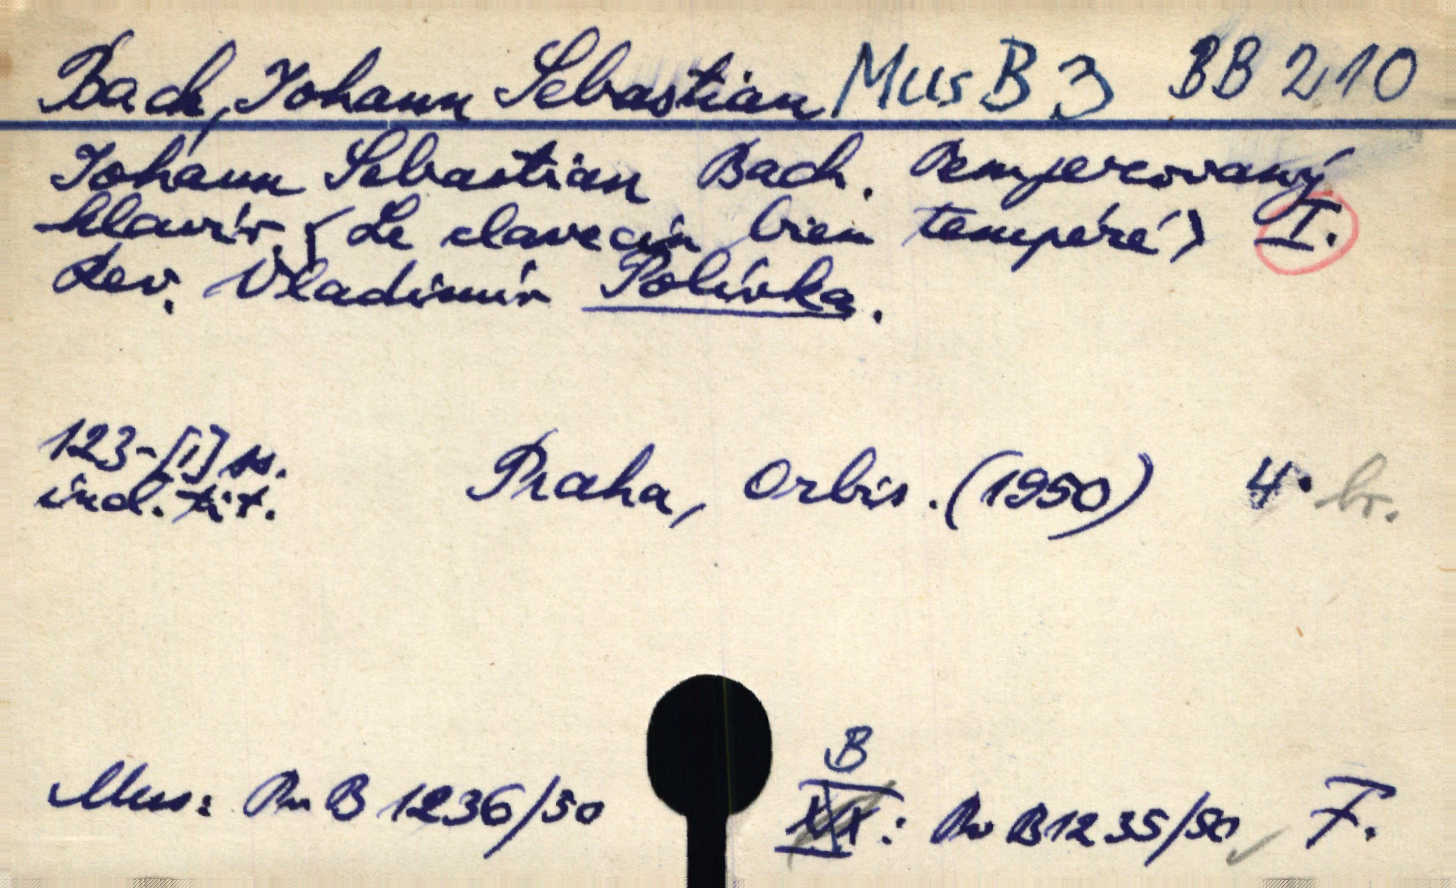 Bach, Johann Sebastian Mus B 3 BB 210
Johann Sebastian Bach. Temperovaný
klavír. (Le clavecin bien tempéré) I.
Rev. Vladimír Polívka.
123-[1] s.
ind. tit.
Praha, Orbis. (1950) 4° br.
B
Mus: Pu B 1236/50 XIX: Pu B 1235/50 F.